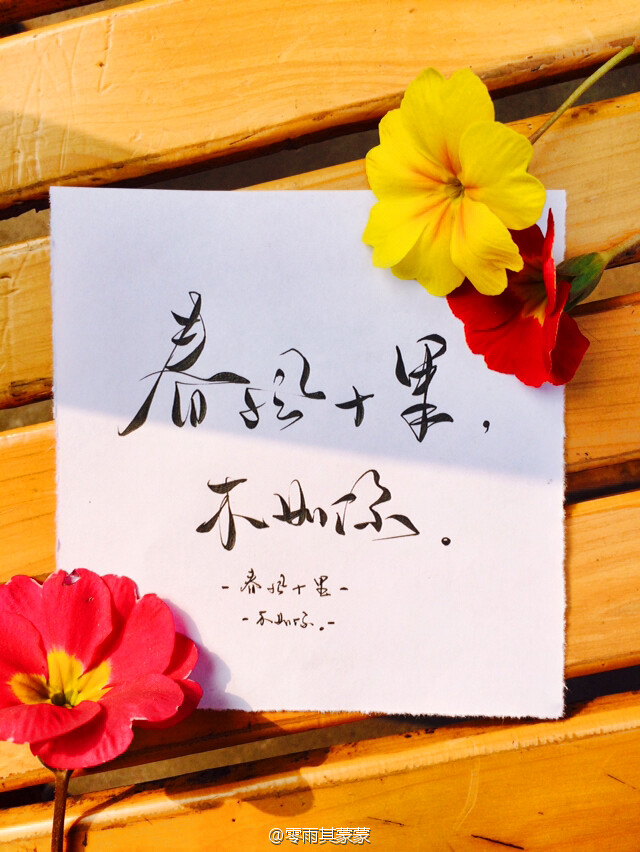 春风十里，
不如你。
-春风十里-
-不如你.-
@零雨其蒙蒙